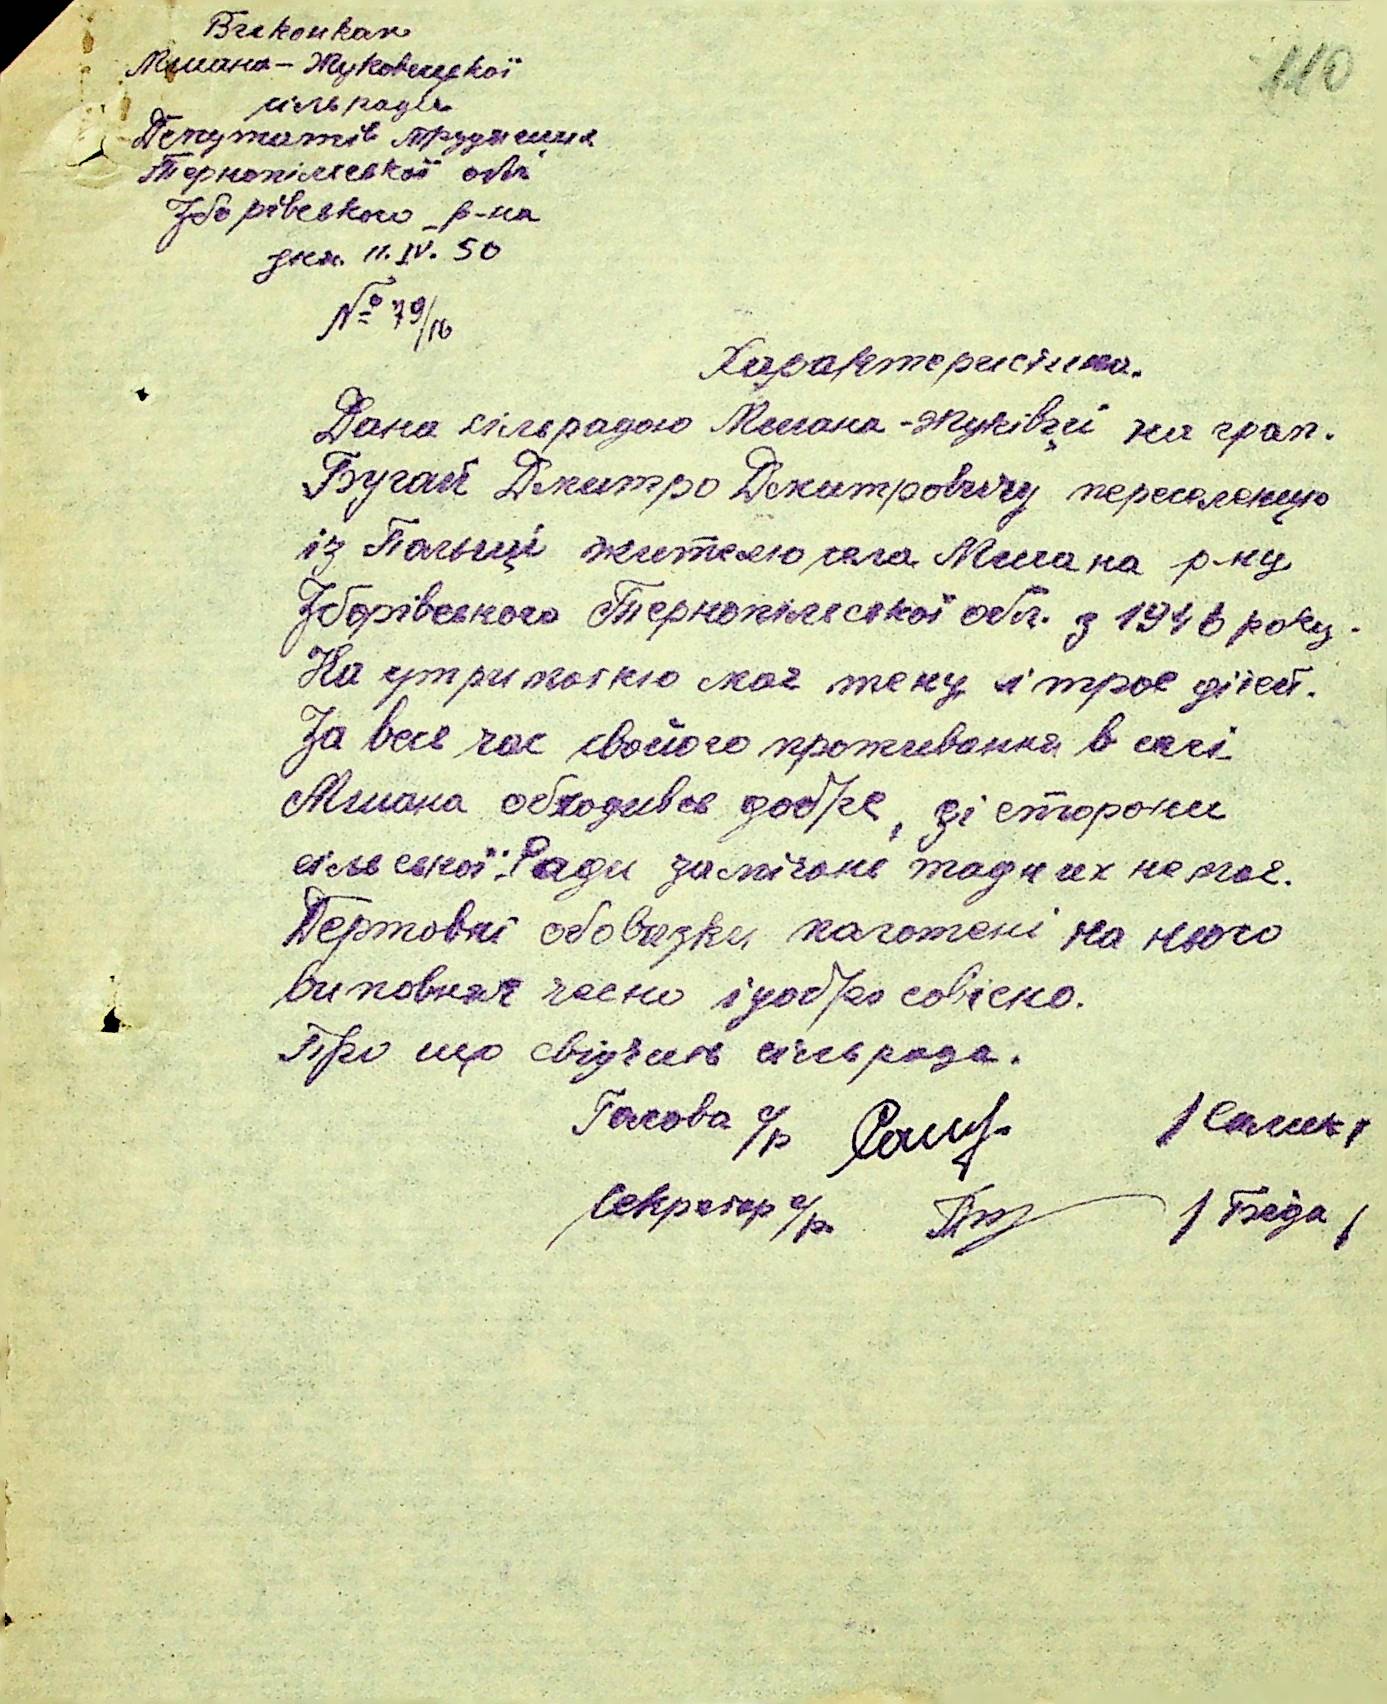 Виконком
Мшана-Жуковецкої
сільради
Депутатів трудящих
Тернопілеської обл.
Зборівського р-на
дня. 11.IV.50
№ 79/16
110
Характеристика.
Дана сільрадою Мшана-Жуківці на грап.
Бугай Дмитро Дмитровичу переселенцю
із Польщі жителю села Мшана р-ну
Зборівського Тернопілеської обл. з 1946 року.
На утриманню має жену і троє дітей.
За весь час свойого проживання в селі
Мшана обходився добре, зі сторони
сільської Ради замічань жадних немає.
Держовні обовязки наложені на нього
виповняє чесно і добросовісно.
Про що свідчить сільрада.
Голова с/р /Салик/
Секретар с/р. /Біда/